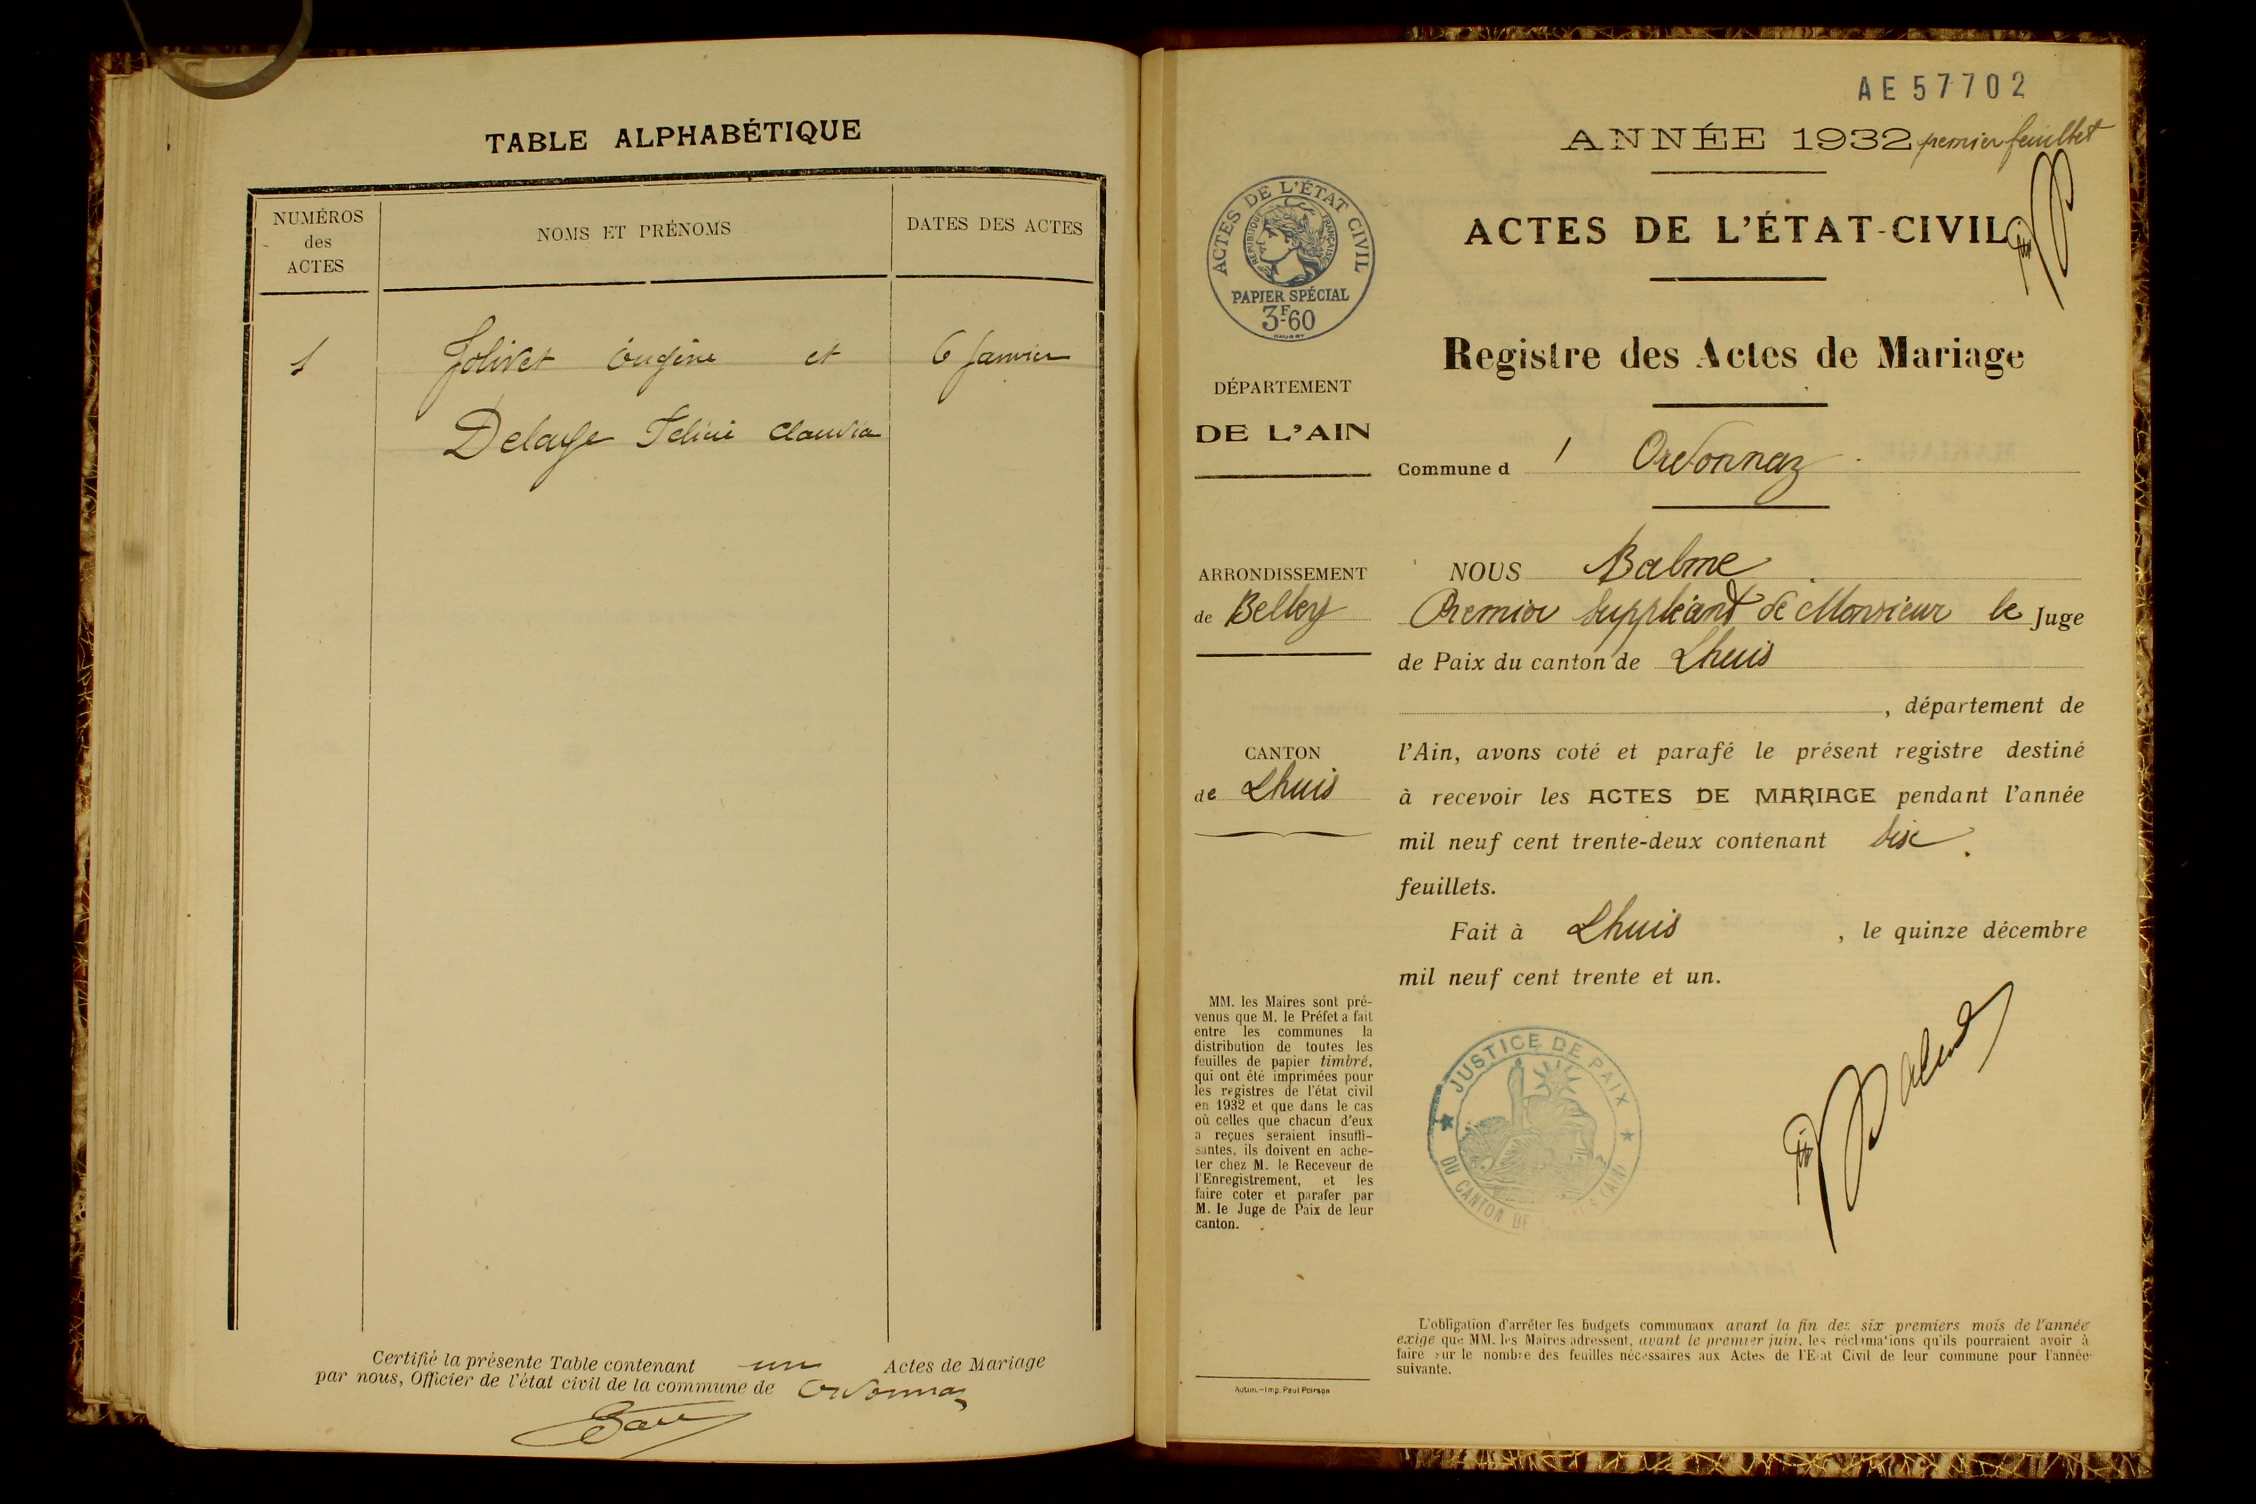 TABLE ALPHABÉTIQUE
NUMÉROS
des
ACTES
NOMS ET PRÉNOMS
DATES DES ACTES
1
Jolivet Eugène et
6 Janvier
Delaye Félicie Claudia
Certifié la présente Table contenant un Actes de Mariage
par nous, Officier de l'état civil de la commune de Ordonnaz
AE 57702
ANNÉE 1932 premier feuillet
ACTES DE L'ÉTAT CIVIL
RÉPUBLIQUE FRANÇAISE
PAPIER SPÉCIAL
3F60
ACTES DE L'ÉTAT-CIVIL
Registre des Actes de Mariage
DÉPARTEMENT
DE L'AIN
Commune d ' Ordonnaz
ARRONDISSEMENT
de Belley
CANTON
de Lhuis
NOUS Balme
Premier Suppléant de Monsieur le Juge
de Paix du canton de Lhuis
, département de
l'Ain, avons coté et parafé le présent registre destiné
à recevoir les ACTES DE MARIAGE pendant l'année
mil neuf cent trente-deux contenant six
feuillets.
Fait à Lhuis , le quinze décembre
mil neuf cent trente et un.
MM. les Maires sont pré-
venus que M. le Préfet a fait
entre les communes la
distribution de toutes les
feuilles de papier timbré,
qui ont été imprimées pour
les registres de l'état civil
en 1932 et que dans le cas
où celles que chacun d'eux
a reçues seraient insuffi-
santes, ils doivent en ache-
ter chez M. le Receveur de
l'Enregistrement, et les
faire coter et parafer par
M. le Juge de Paix de leur
canton.
JUSTICE DE PAIX
DU CANTON DE (AIN)
Balme
L'obligation d'arrêter les budgets communaux avant la fin des six premiers mois de l'année
exige que MM. les Maires adressent, avant le premier juin, les réclamations qu'ils pourraient avoir à
faire sur le nombre des feuilles nécessaires aux Actes de l'Etat Civil de leur commune pour l'année
suivante.
Autun.—Imp. Paul Poirson